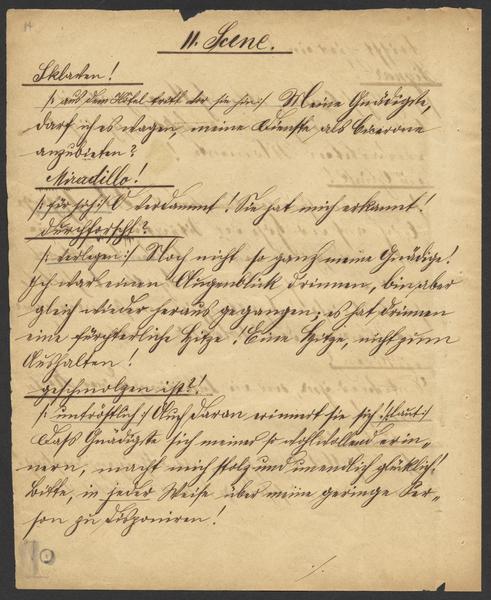 11. Scene.
Sklaven!
/: aus dem Hôtel tritt vor sie hin :/ Meine Gnädigste,
darf ich es wagen, meine Dienste als Cicerone
anzubieten?
Miradillo!
/: für sich :/ O verdammt! Sie hat mich erkannt!
durchforscht?
/: verlegen :/ Noch nicht so ganz meine Gnädige!
Ich war einen Augenblick drinnen, bin aber
gleich wieder heraus gegangen; es hat drinnen
eine fürchterliche Hitze! Eine Hitze, nicht zum
Aushalten!
geschmolzen ist?!
/: untröstlich :/ Auch daran erinnert sie sich /: laut :/
Dass Gnädigste sich meiner so wohlwollend erin-
nern, macht mich stolz und unendlich glücklich!
Bitte, in jeder Weise über meine geringe Per-
son zu disponiren!
./.